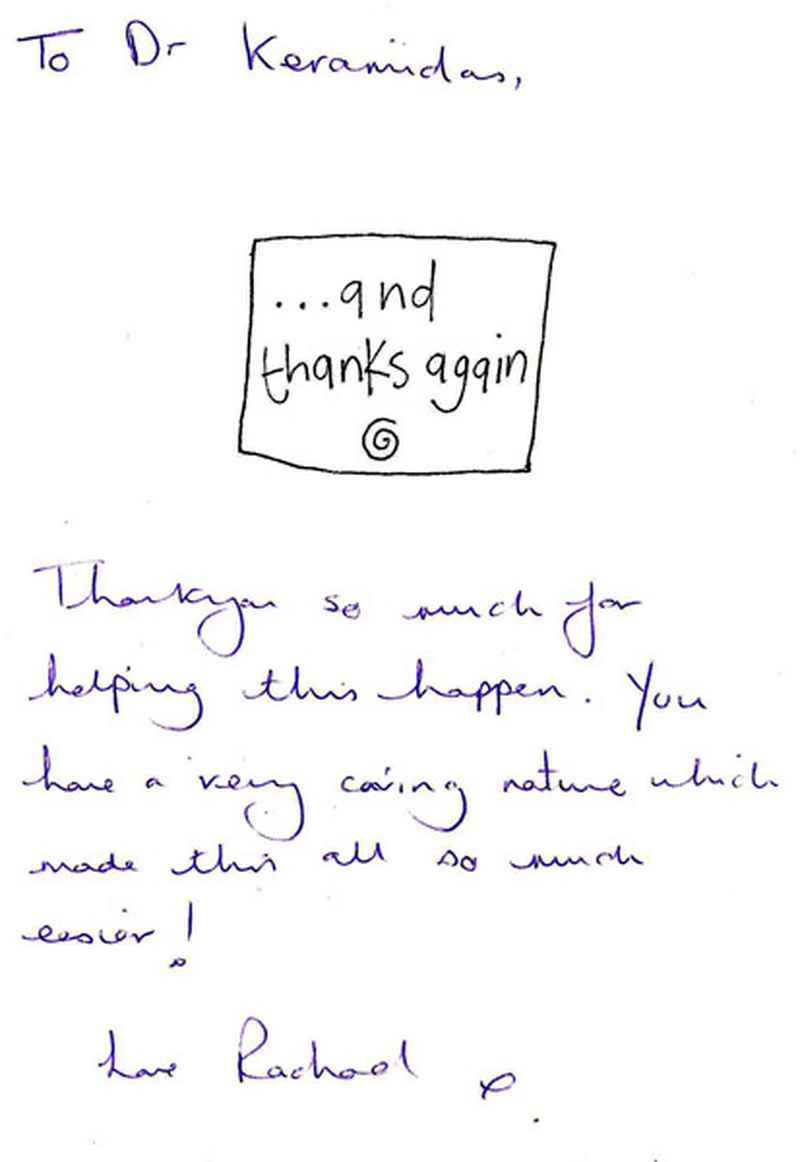 To Dr Keramidas,
...and
thanks again
Thankyou so much for
helping this happen. You
have a very caring nature which
made this all so much
easier!
Love Rachael x